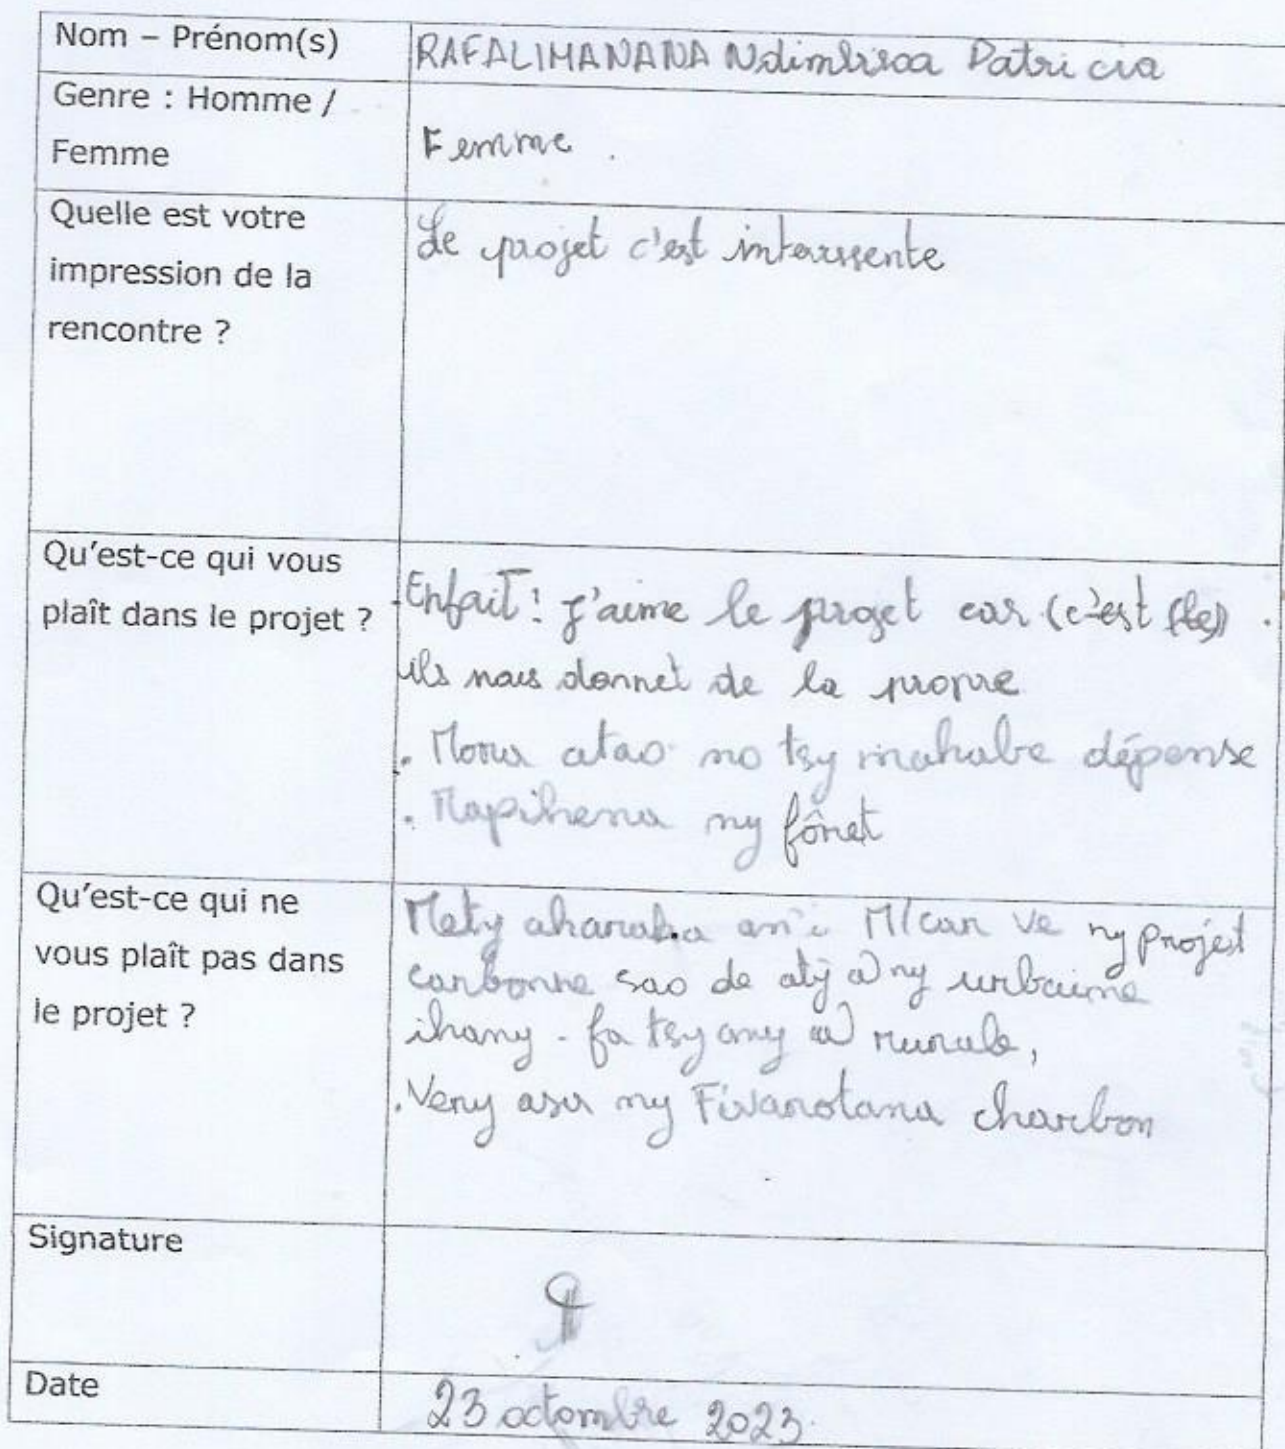 Nom – Prénom(s)
RAFALIMANANA Ndimbisoa Patricia
Genre : Homme /
Femme
Femme.
Quelle est votre
impression de la
rencontre ?
Le projet c'est interussente
Qu'est-ce qui vous
plaît dans le projet ?
Enfait! j'aime le projet car (c'est (le)) .
ils nous donnet de la propre
. Mora atao no tsy mahabe dépense
. Mapihena ny fônet
Qu'est-ce qui ne
vous plaît pas dans
le projet ?
Mety aharaka an'i M/car ve ny projest
carbonne sao de aty @ ny urbaime
ihany - fa tsy any @ rurale,
. Very asa ny Fivarotana charbon
Signature
Date
23 octombre 2023.